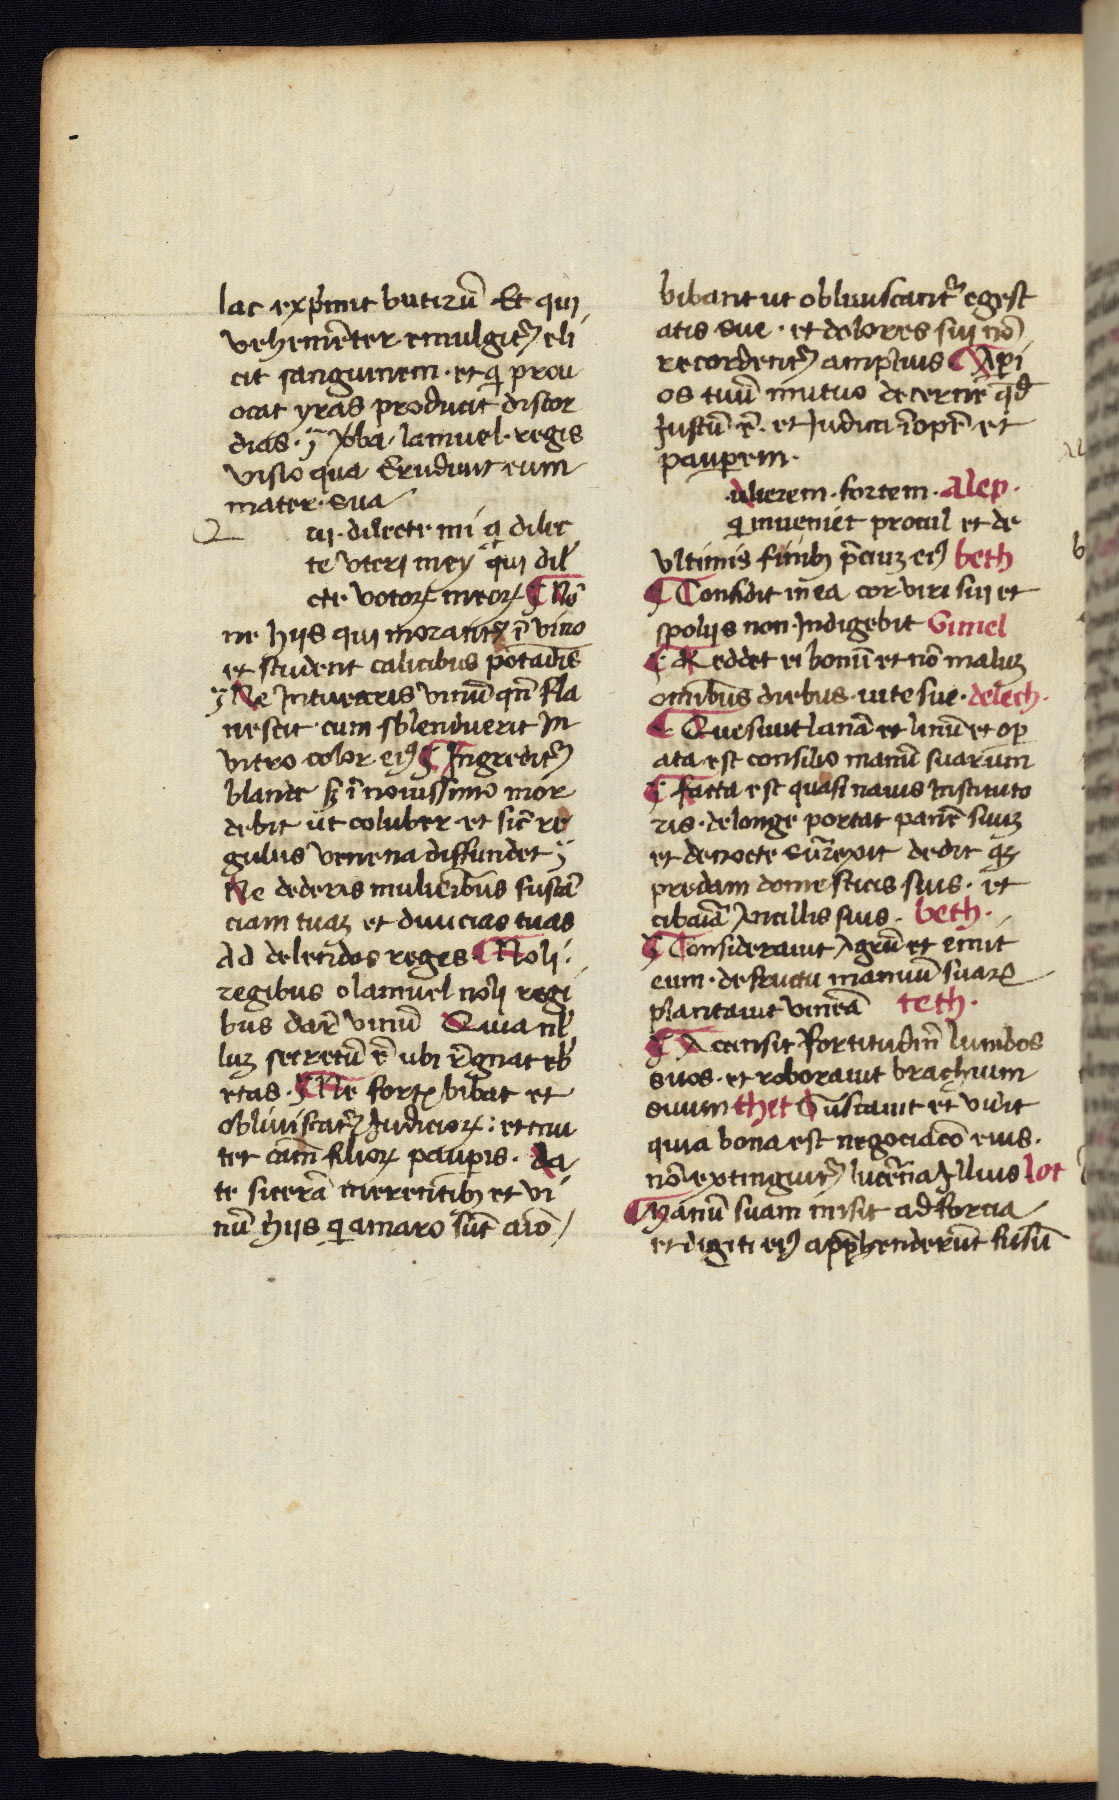 lac exp̾mit butirū Et qui
vehemēter emulgit᷑ eli
cit sanguinem · et q̣ prou
ocat yras producit discor
dias · ꝫ v̾ba · lamuel · regis
visio qua Erudiuit eum
mater · sua
uj · dilecte mi q̣ dilec
te vteri mey qui dil
cte votoꝝ meoꝝ ¶ Nō
ne hijs qui morant᷑ ī vino
et student calicibus potādis
Ne Intuearis vinū qn̄ fla
uescit cum splenduerit In
vitro color eiꝰ ¶ Ingredit᷑
blande sꝫ ī nouissimo mor
debit ut coluber et sic̄ re
gulus venena diffundet
Ne dederis mulieribus sustā
ciam tuaꝫ et diuicias tuas
Ad delendos reges ¶ Noli ·
regibus o lamuel noli regi
bus dar̄ vinū Quia nl̄
luꝫ secretū ē ubi r̄gnat eb̾
etas · ¶ Ne forte bibat et
obliuiscat᷑ Judicioꝝ : et mu
tet cām filioꝝ paup̱is · da
te sicerā merentibꝫ et vi
nū hijs q̣ amaro sūt aīo
bibant ut obliuiscant᷑ egest
atis sue · et dolores sui nō
recordent᷑ amplius ¶ Ap̱i
os tuū mutuo decerne qd̄
Justū ē · et Judica īopē et
paup̱em ·
ulierem · fortem · alep ·
q̣ inueniet procul et de
vltimis finibꝫ p̄ciuꝫ eiꝰ beth
¶ Confidit in ea cor viri sui et
spolijs non Indigebit Gimel
¶ Reddet ei bonū et nō maluꝫ
omnibus diebus · uite sue · delech ·
¶ Quesiuit lanā et linū et op̱
ata est consilio manū suarum
¶ facta est quasi nauis Instituto
ris · de longe portat panē suuꝫ
et de nocte surrexit dedit qꝫ
predam domesticis suis · et
cibaīa Ancillis suis · beth ·
¶ Considerauit Agrū et emit
eum · de fructu manuū suaꝝ
plantauit vineā teth ·
¶ Accinsit fortitudīe lumbos
suos · et roborauit brachium
suum thet Gustauit et vidit
quia bona est negociacō eius ·
nō extinguit᷑ lucerna Illius lot
Manū suam misit ad forcia
et digiti eiꝰ app̄henderūt fusū